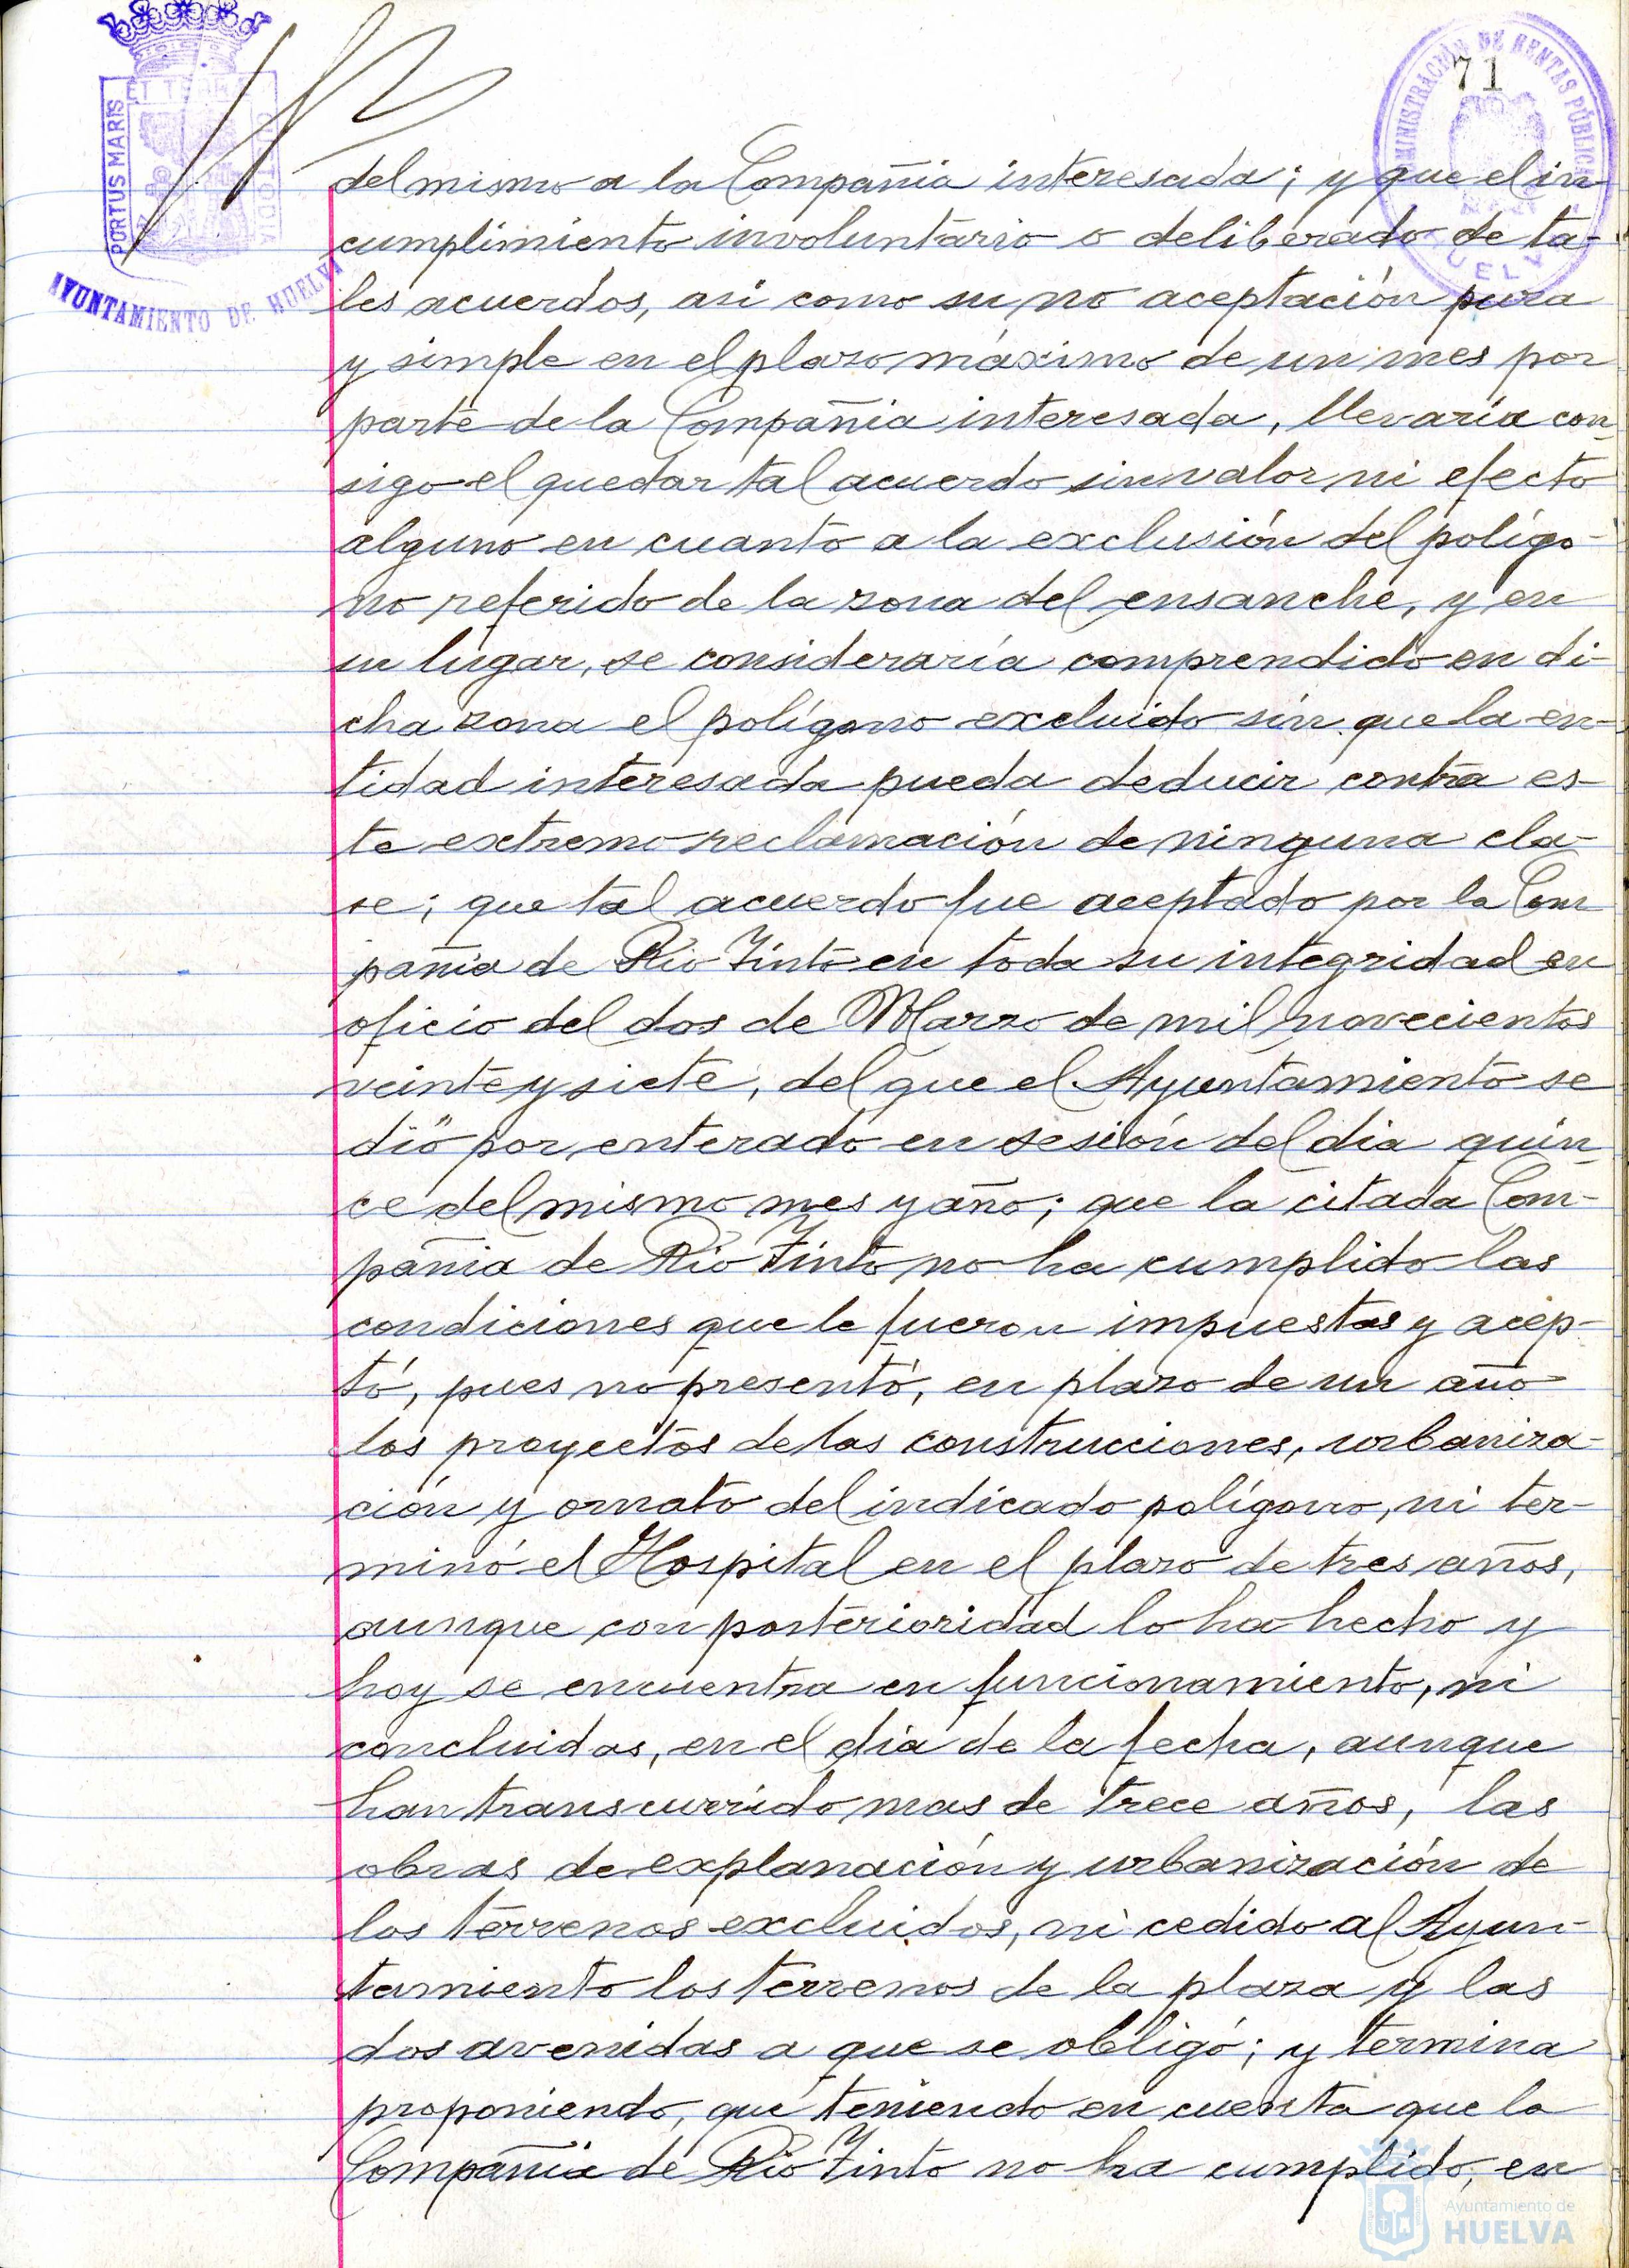 71
ADMINISTRACIÓN DE RENTAS PÚBLICAS
HUELVA
PORTUS MARIS
ET TERRAE
CUSTODIA
AYUNTAMIENTO DE HUELVA
del mismo a la Compañia interesada; y que el in
cumplimiento involuntario o deliberado de ta-
les acuerdos, asi como su no aceptación pura
y simple en el plazo máximo de un mes por
parte de la Compañia interesada, llevaría con
sigo el quedar tal acuerdo sin valor ni efecto
alguno en cuanto a la exclusión del polígo-
no referido de la zona del ensanche, y en
su lugar, se consideraría comprendido en di-
cha zona el polígono excluido sin que la en-
tidad interesada pueda deducir contra es-
te extremo reclamación de ninguna cla-
se; que tal acuerdo fue aceptado por la Com
pañia de Rio Tinto en toda su integridad en
oficio del dos de Marzo de mil novecientos
veinte y siete, del que el Ayuntamiento se
dió por enterado en sesión del dia quin-
ce del mismo mes y año; que la citada Com-
pañia de Rio Tinto no ha cumplido las
condiciones que le fueron impuestas y acep-
tó, pues no presentó, en plazo de un año
los proyectos de las construcciones, urbaniza-
ción y ornato del indicado polígono, ni ter-
minó el Hospital en el plazo de tres años,
aunque con posterioridad lo ha hecho y
hoy se encuentra en funcionamiento, ni
concluidas, en el dia de la fecha, aunque
han transcurrido mas de trece años, las
obras de explanación y urbanización de
los terrenos excluidos, ni cedido al Ayun-
tamiento los terrenos de la plaza y las
dos avenidas a que se obligó; y termina
proponiendo, que teniendo en cuenta que la
Compañia de Rio Tinto no ha cumplido, en
Ayuntamiento de
HUELVA